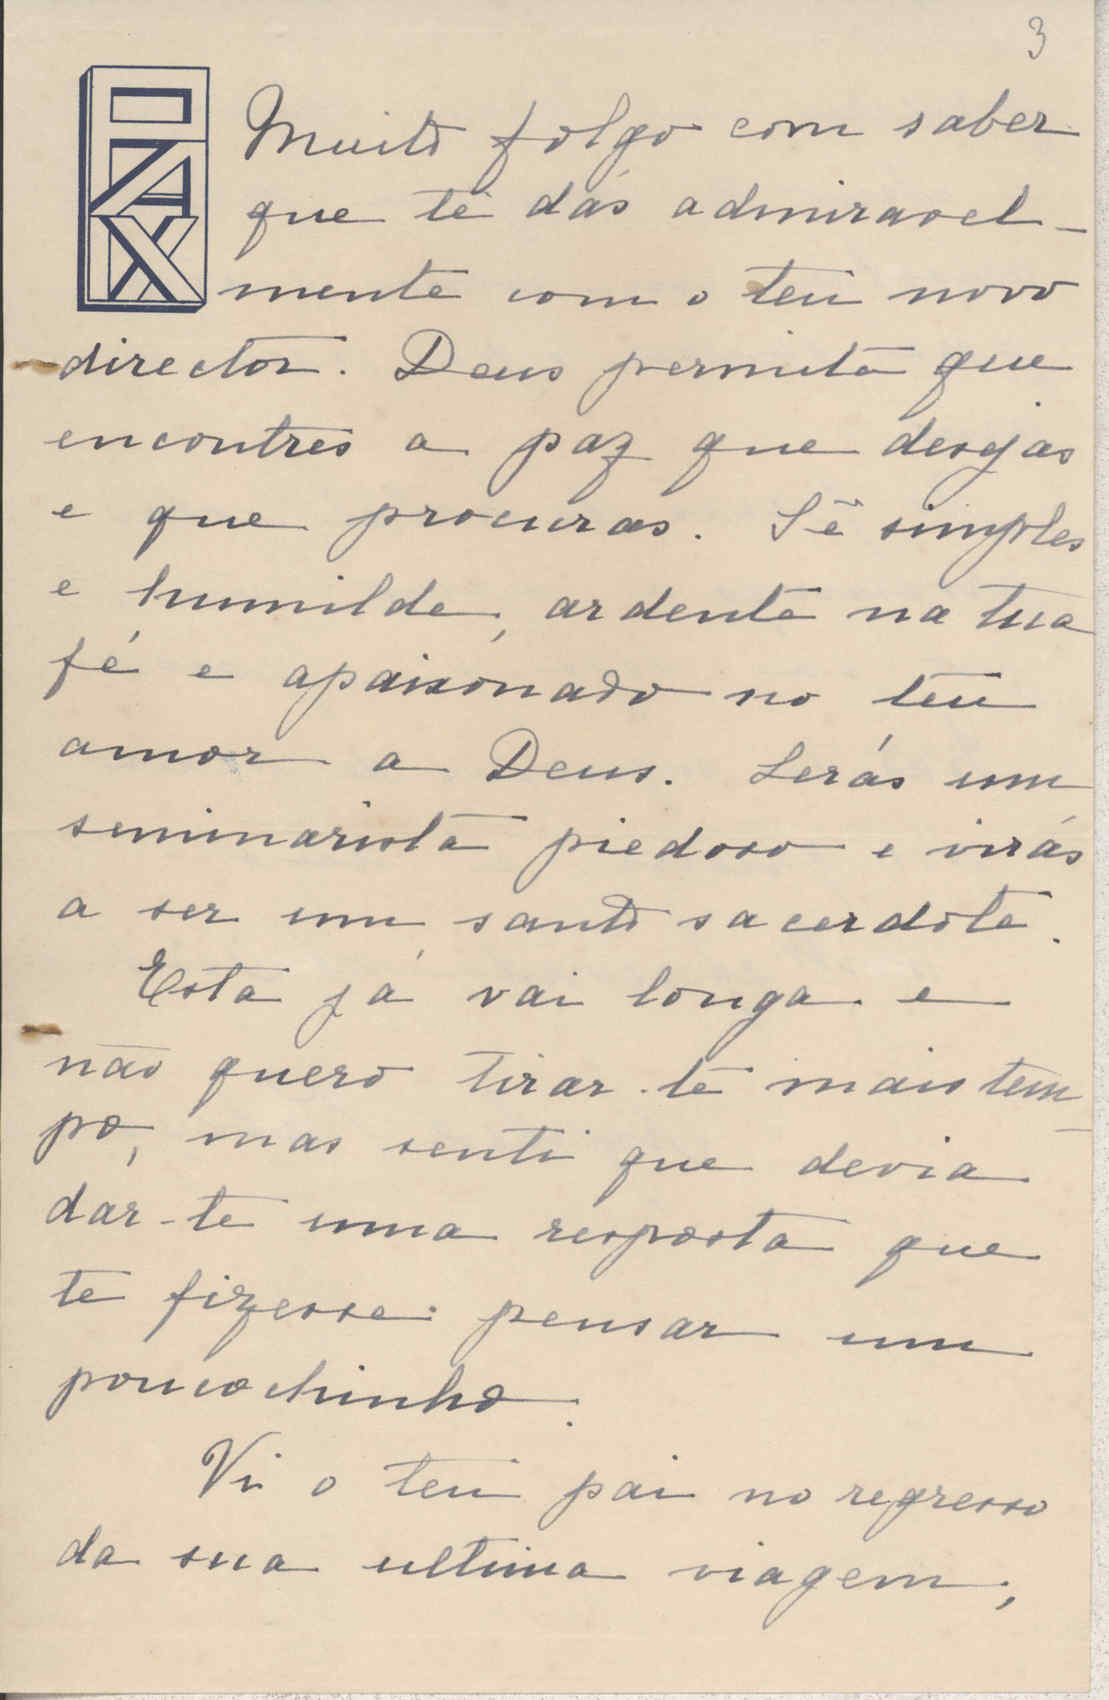 3
Muito folgo com saber
que te dás admiravel-
mente com o teu novo
director. Deus permita que
encontres a paz que desejas
e que procuras. Sê simples
e humilde, ardente na tua
fé e apaixonado no teu
amor a Deus. Serás um
seminarista piedoso e virás
a ser um santo sacerdote.
Esta já vai longa e
não quero tirar-te mais tem-
po, mas senti que devia
dar-te uma resposta que
te fizesse pensar um
poucochinho.
Vi o teu pai no regresso
da sua ultima viagem,